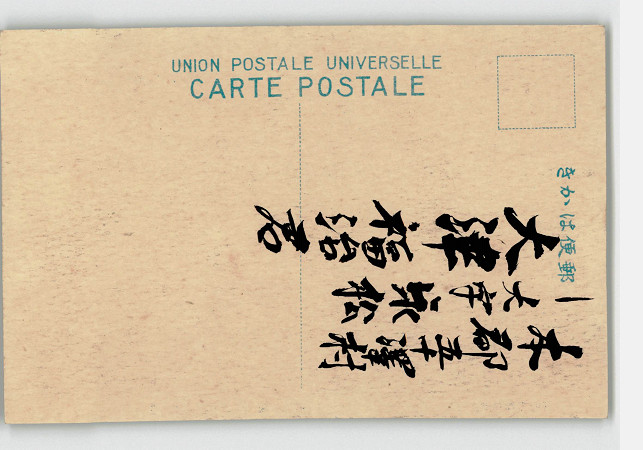 UNION POSTALE UNIVERSELLE
CARTE POSTALE
きかは便郵
本郡五十澤村
大字
大津福治君